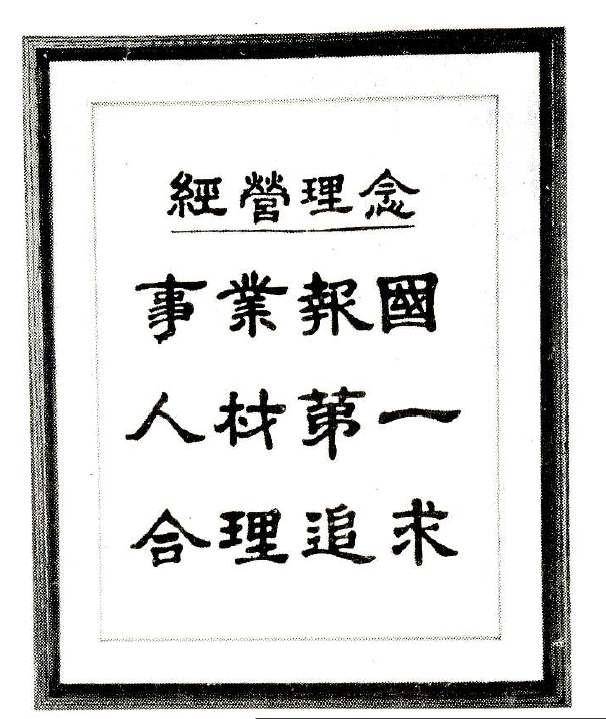 經營理念
事業報國
人材第一
合理追求